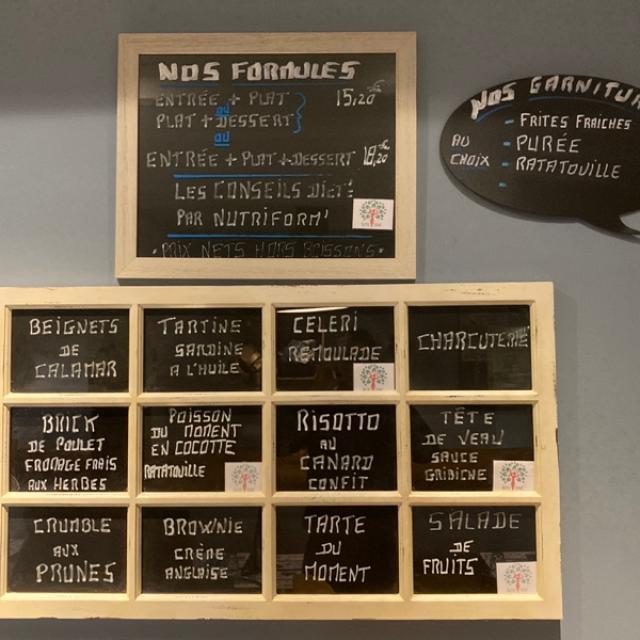 NOS FORMULES
ENTRÉE + PLAT 15,20
ou
PLAT + DESSERT
ou
ENTRÉE + PLAT + DESSERT 18,20
LES CONSEILS DIET'
PAR NUTRIFORM'
• PRIX NETS HORS BOISSONS •
NOS GARNITUR
AU CHOIX
- FRITES FRAICHES
- PURÉE
- RATATOUILLE
-
BEIGNETS
DE
CALAMAR
TARTINE
SARDINE
A L'HUILE
CELERI
REMOULADE
CHARCUTERIE
BRICK
DE POULET
FROMAGE FRAIS
AUX HERBES
POISSON
DU MOMENT
EN COCOTTE
RATATOUILLE
RISOTTO
AU
CANARD
CONFIT
TÊTE
DE VEAU
SAUCE
GRIBICHE
CRUMBLE
AUX
PRUNES
BROWNIE
CRÈME
ANGLAISE
TARTE
DU
MOMENT
SALADE
DE
FRUITS